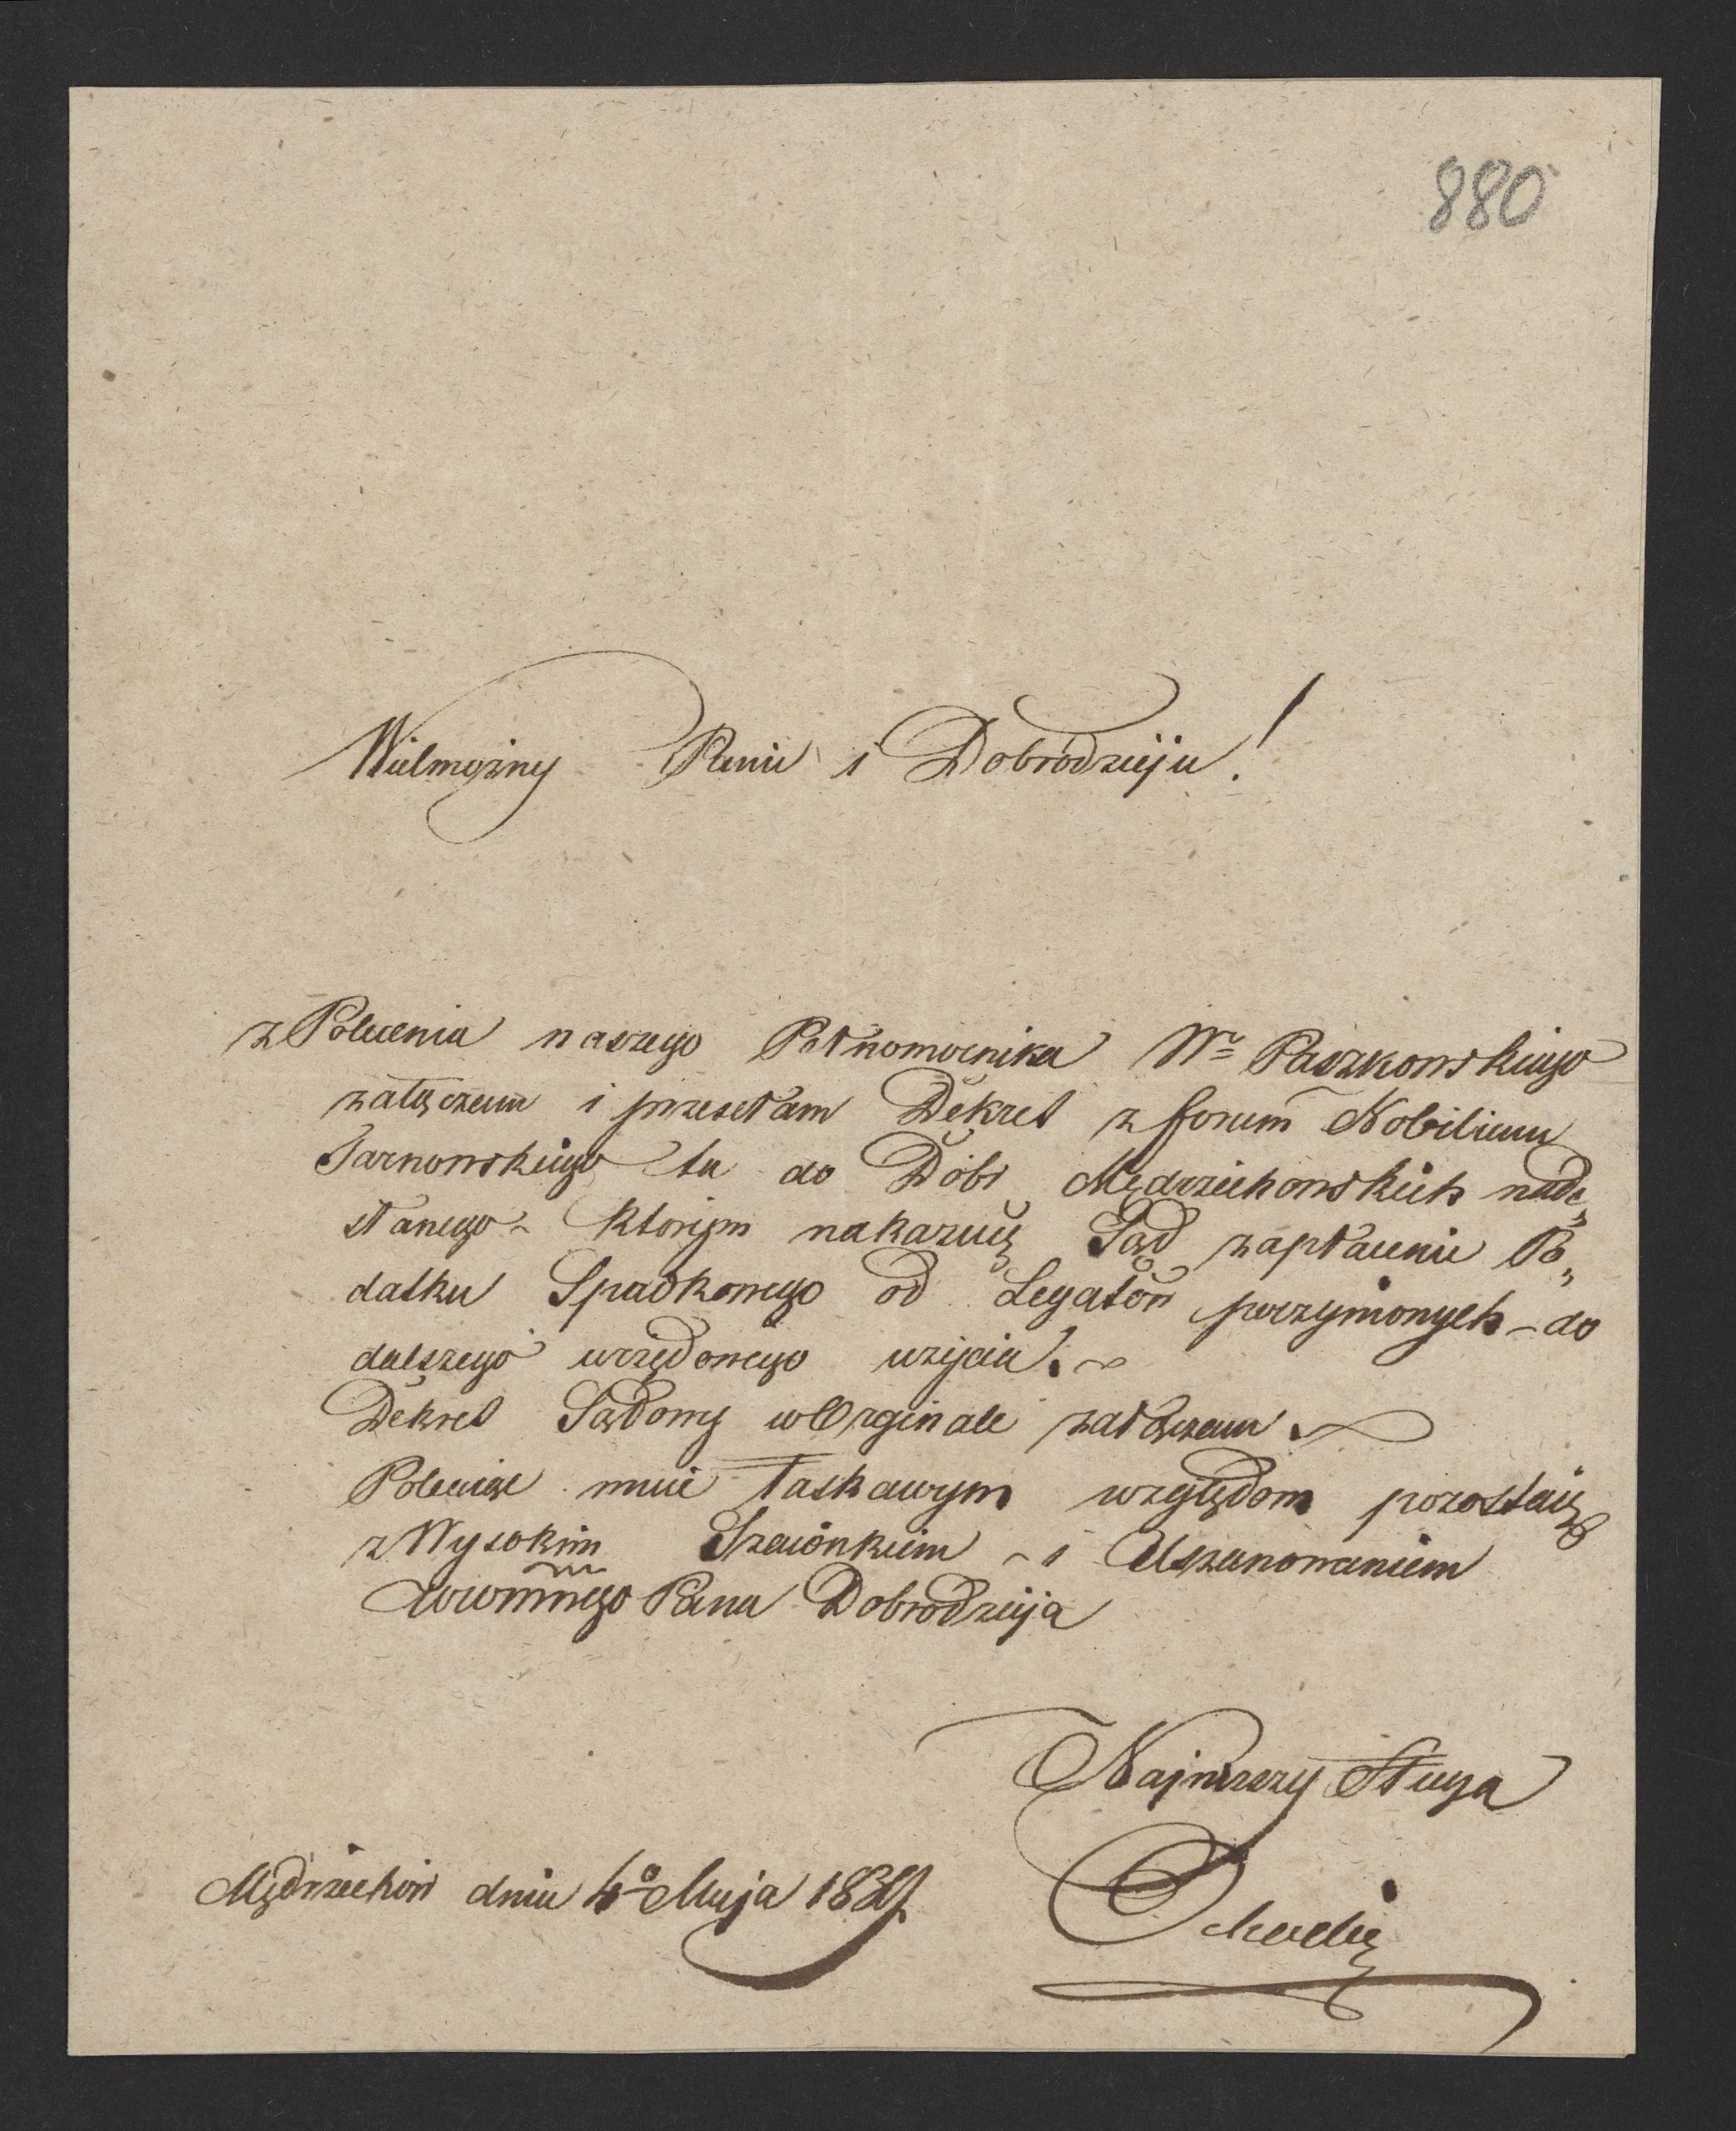 880
Wielmożny Panie i Dobrodzieju!
z Polecenia naszego Pełnomocnika Wo Paszkowskiego
załączam i przesełam Dekret z forum Nobilium
Tarnowskiego tu do Dóbr Mędrzechowskich nade„
słanego – ktorym nakazuię Sąd zapłacenie Po„
datku Spadkowego od Legatów poczynionych – do
dalszego urzędowego użycia. –
Dekret Sądowy w Orginale załączam
Polecaiąc mnie łaskawym względom pozostaię
z Wysokim Szacónkiem – i Uszanowaniem
Pana Dobrodzieja
Najniższy Sługa
Mędrzechów dnia 4o Maja 1839